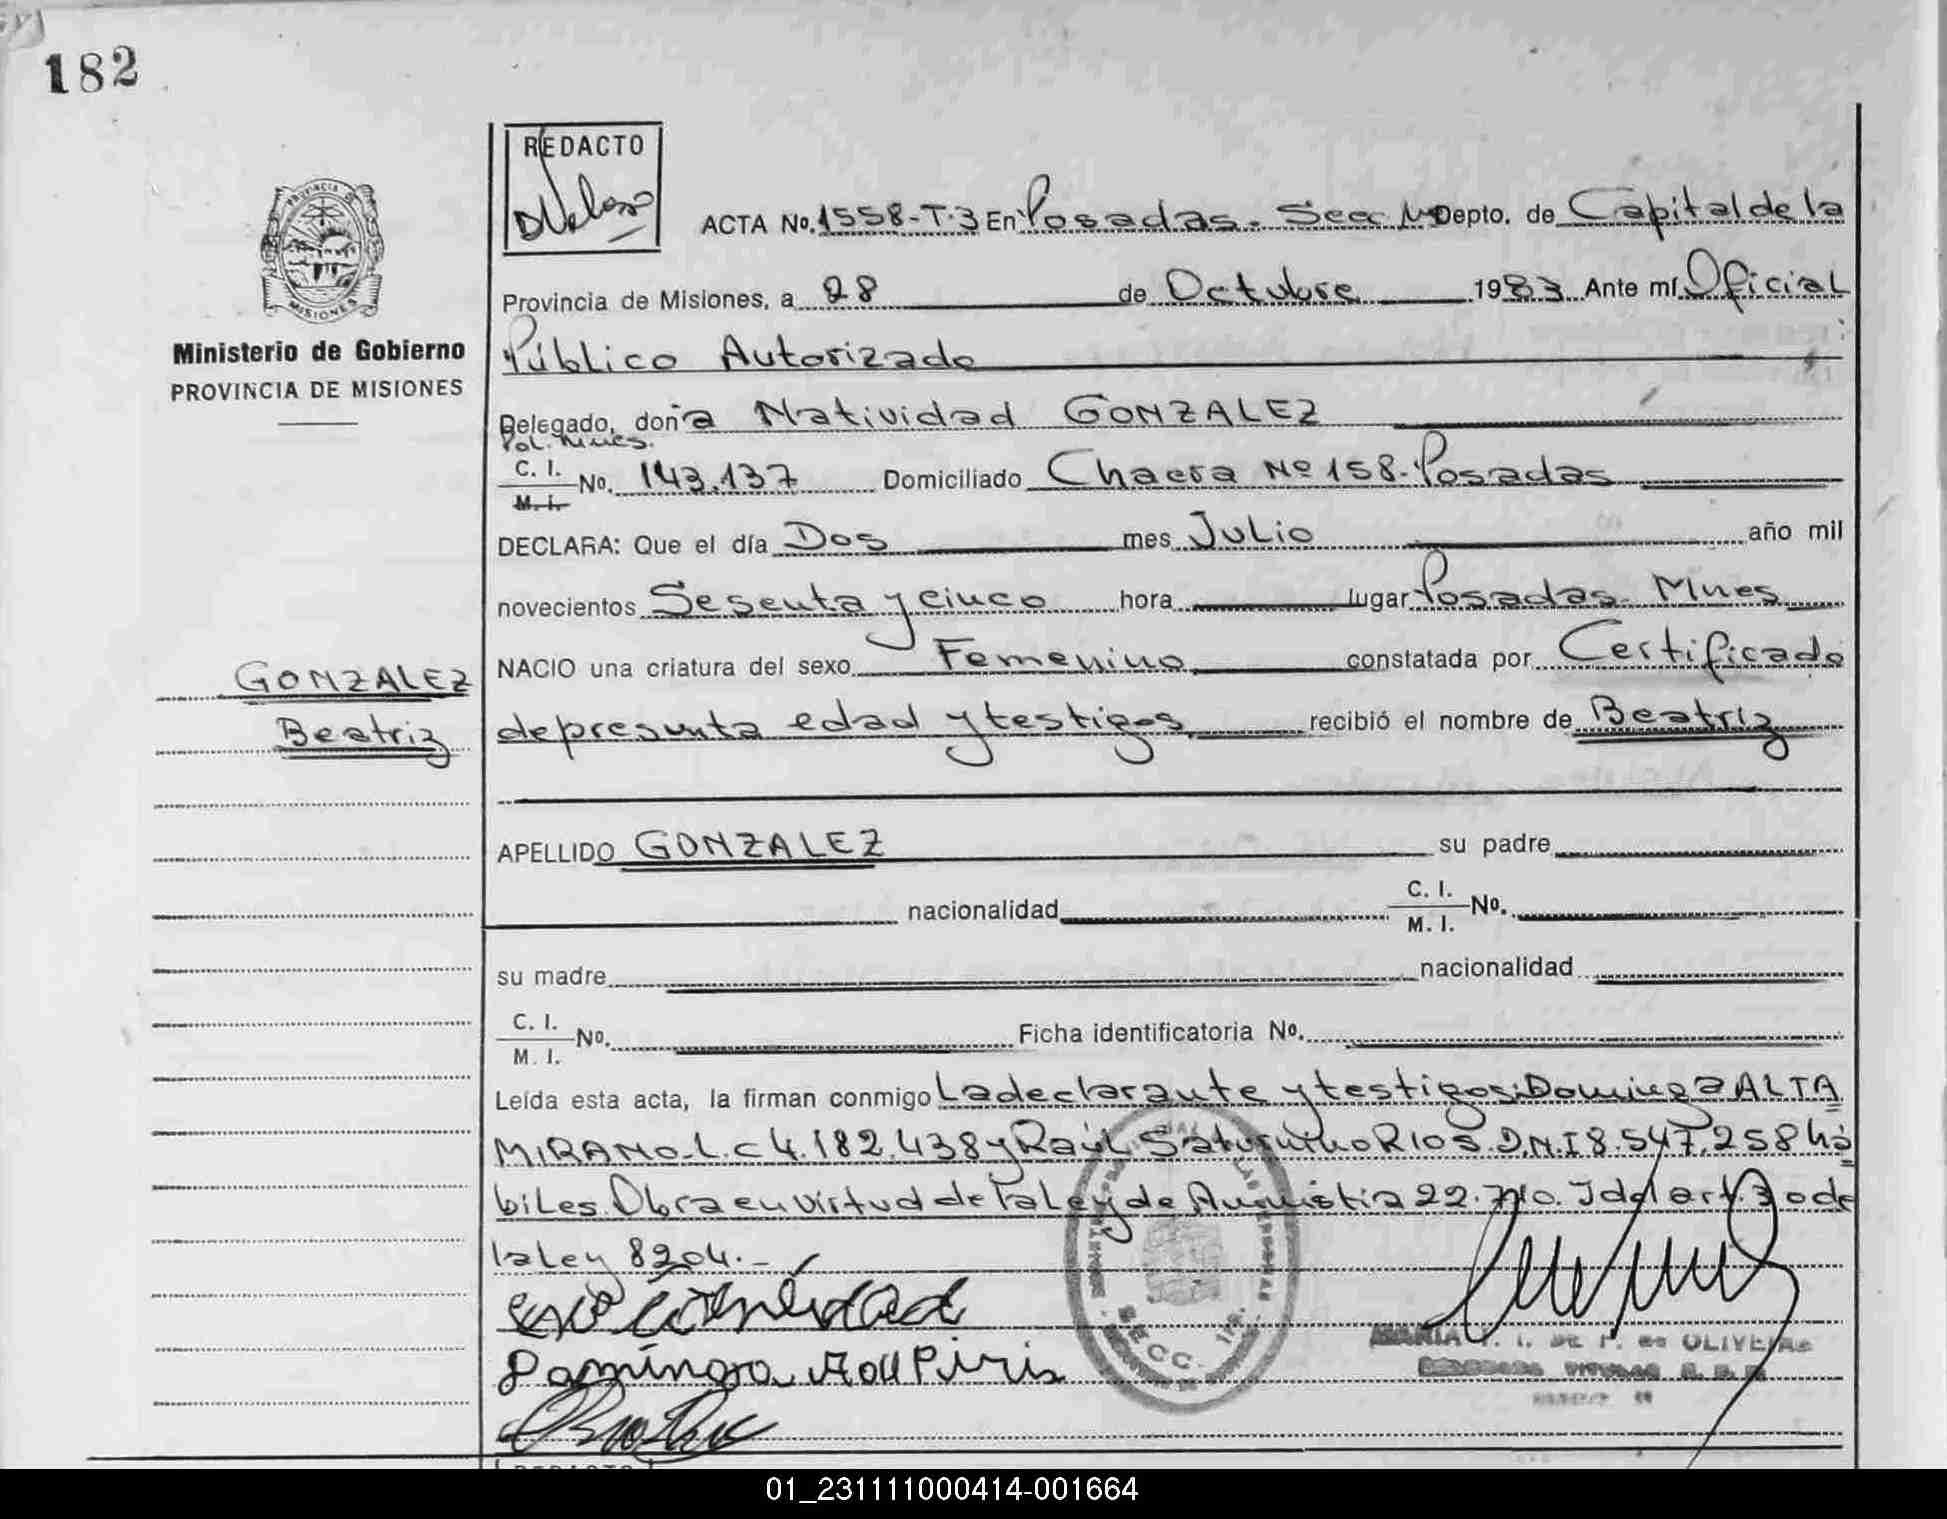 182
REDACTO
ACTA No. 1558-T-3 En Posadas. Secc Depto. de Capital de la
Provincia de Misiones, a 28 de Octubre 1983 Ante mí Oficial
Público Autorizado
PROVINCIA DE
MISIONES
Ministerio de Gobierno
PROVINCIA DE MISIONES
Delegado, don'a Natividad GONZALEZ
Pol. Mnes.
C. I. M. I. No. 143.137 Domiciliado Chacra Nº 158-Posadas
DECLARA: Que el día Dos mes Julio año mil
novecientos Sesenta y cinco hora lugar Posadas Mnes
NACIO una criatura del sexo Femenino constatada por Certificado
GONZALEZ
Beatriz
de presunta edad y testigos recibió el nombre de Beatriz
APELLIDO GONZALEZ su padre
nacionalidad C. I. M. I. No.
su madre nacionalidad
C. I. M. I. No. Ficha identificatoria No.
Leída esta acta, la firman conmigo La declarante y testigos: Dominga ALTA
MIRANO-L.C 4.182.438 y Raúl Saturnino RIOS. D.N.I 8.547.258 há
biles. Obra en virtud de la Ley de Amnistia 22.710. I del art. 3o de
la ley 8204.-
Dominga
SECC.
MARIA DE OLIVEIRA
01_231111000414-001664